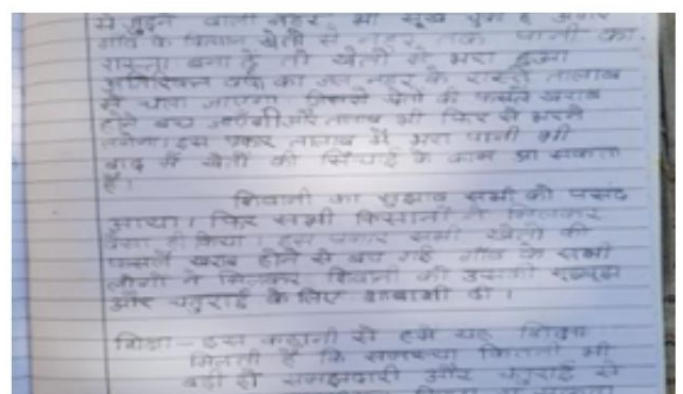 से जुड़ने वाली नहर भी सूख चुकी है अगर
गाँव के किसान खेतों से नहर तक पानी का
रास्ता बना दें तो खेतों में भरा हुआ
अतिरिक्त वर्षा का जल नहर के रास्ते तालाब
में चला जाएगा जिससे खेतों की फसलें खराब
होने से बच जाएँगी और तालाब भी फिर से भरने
लगेगा। इस प्रकार तालाब में भरा पानी भी
बाद में खेतों की सिंचाई के काम आ सकता
है।
शिवानी का सुझाव सभी को पसंद
आया। फिर सभी किसानों ने मिलकर
वैसा ही किया। इस प्रकार सभी खेतों की
फसलें खराब होने से बच गई गाँव के सभी
लोगों ने मिलकर शिवानी को उसकी सूझबूझ
और चतुराई के लिए शाबाशी दी।
शिक्षा - इस कहानी से हमें यह शिक्षा
मिलती है कि समस्या कितनी भी
बड़ी हो समझदारी और चतुराई से